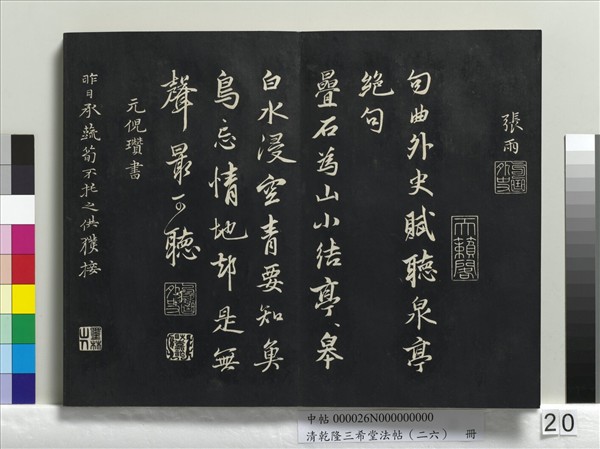 張雨
句曲外史賦聽泉亭
絕句
疊石為山小結亭、皋
白水浸空青要知魚
鳥忘情地卻是無
聲最可聽
元倪瓚書
昨日承蔬筍不托之供獲接
天籟閣
申帖 000026N000000000
清乾隆三希堂法帖（二六） 冊
20